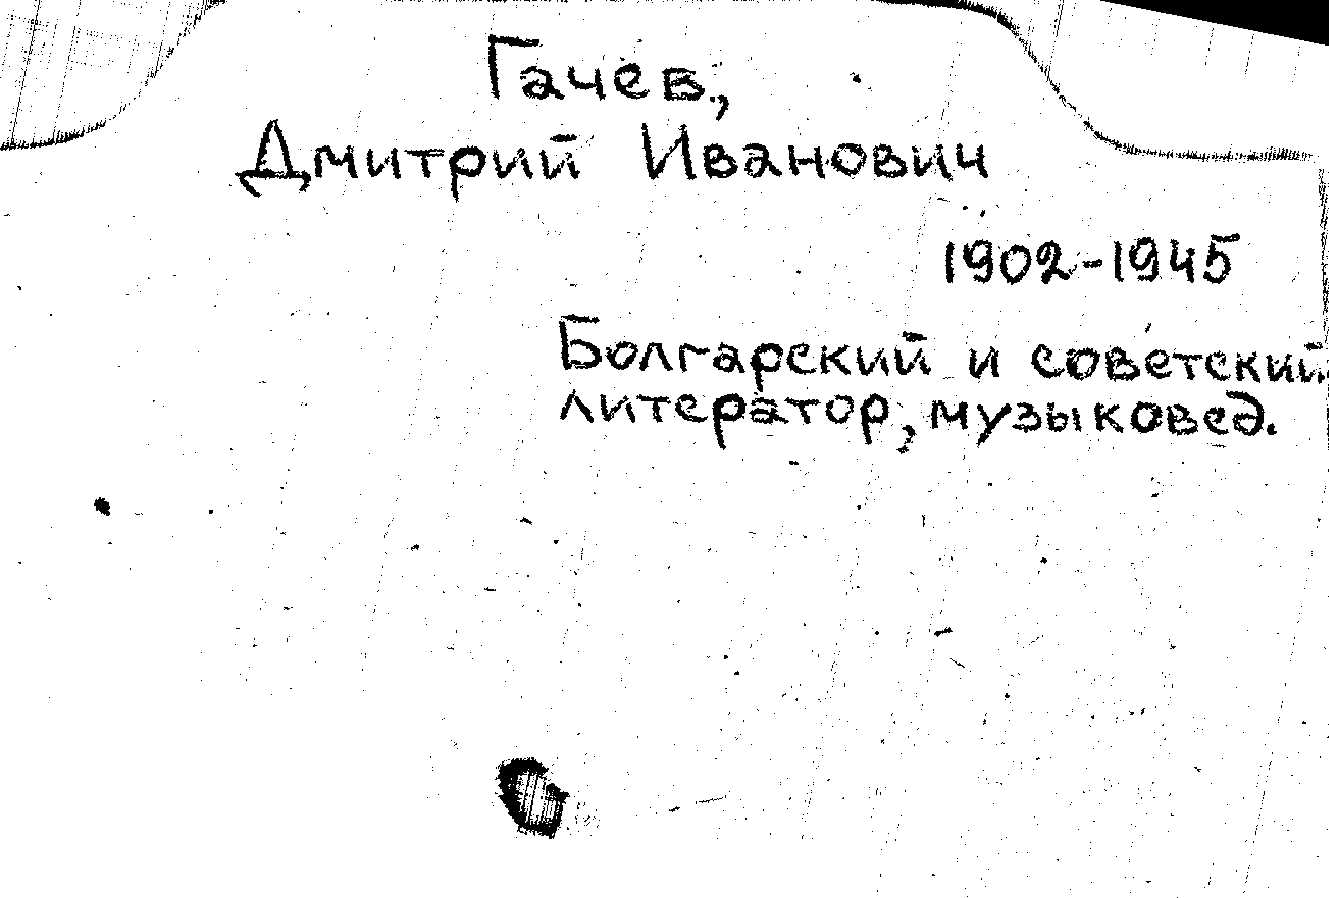 Гачев,
Дмитрий Иванович
1902-1945
Болгарский и советский
литератор, музыковед.